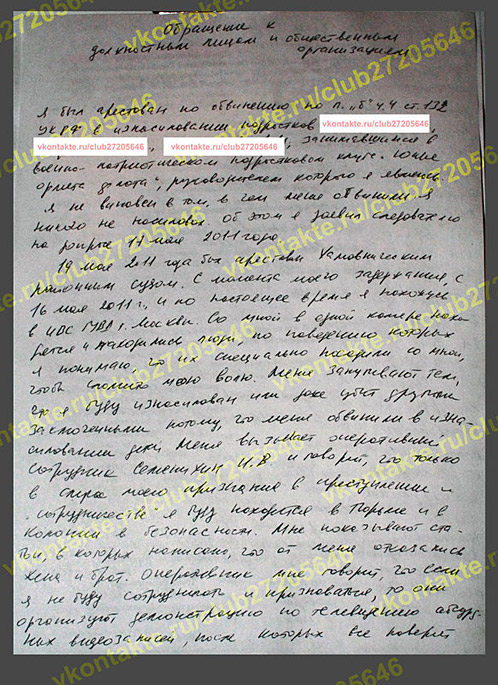 Обращение к
должностным лицам и общественным
организациям
Я был арестован по обвинению по п. "б" ч. 4 ст. 132
УК РФ в изнасиловании подростков vkontakte.ru/club27205646
vkontakte.ru/club27205646, vkontakte.ru/club27205646, занимавшимся в
военно-патриотическом подростковом клубе "Юные
орлята", руководителем которого я являюсь.
Я не виновен в том, в чем меня обвинили. Я
никого не насиловал об этом я заявил следователю
на допросе 17 мая 2011 года.
19 мая 2011 года был арестован Хамовническим
районным судом. С момента моего задержания, с
16 мая 2011 г., и по настоящее время я нахожусь
в ИВС ГУВД г. Москвы. Со мной в одной камере нахо-
дятся и находились люди, по поведению которых
я понимаю, что их специально посадили со мной,
чтобы сломить мою волю. Меня запугивают тем,
что я буду изнасилован или даже убит другими
заключенными потому, что меня обвинили в изна-
силовании детей. Меня вызывает оперативный
сотрудник Семенихин И.В и говорит, что только
в случае моего признания в преступлении и
сотрудничестве я буду находится в тюрьме и в
колонии в безопасности. Мне показывают ста-
тьи, в которых написано, что от меня отказались
жена и брат. Оперативник мне говорит, что если
я не буду сотрудничать и признаваться, то они
организуют демонстрацию по телевидению абсурд-
ных видеозаписей, после которых все поверят
vkontakte.ru/club27205646